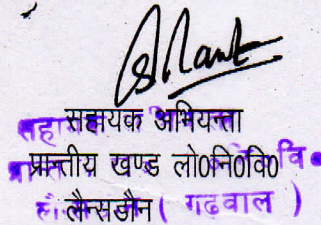 सहायक अभियन्ता
प्रान्तीय खण्ड लो0नि0वि0
लैन्सडौन ( गढवाल )